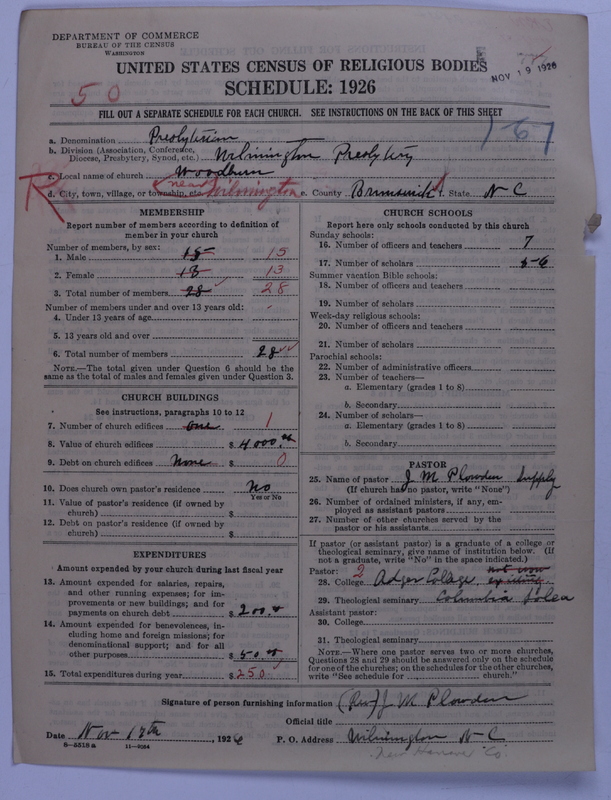 DEPARTMENT OF COMMERCE
BUREAU OF THE CENSUS
WASHINGTON
UNITED STATES CENSUS OF RELIGIOUS BODIES
NOV 19 1926
SCHEDULE: 1926
50
FILL OUT A SEPARATE SCHEDULE FOR EACH CHURCH. SEE INSTRUCTIONS ON THE BACK OF THIS SHEET
167
a. Denomination Presbyterian
b. Division (Association, Conference, Diocese, Presbytery, Synod, etc.) Wilmington Presbytery
c. Local name of church Woodburn
R near
d. City, town, village, or township, etc. Wilmington e. County Brunswick f. State N C
MEMBERSHIP
Report number of members according to definition of
member in your church
Number of members, by sex:
1. Male 15 15
2. Female 13 13
3. Total number of members 28 28
Number of members under and over 13 years old:
4. Under 13 years of age
5. 13 years old and over
6. Total number of members 28
NOTE.—The total given under Question 6 should be the
same as the total of males and females given under Question 3.
CHURCH BUILDINGS
See instructions, paragraphs 10 to 12
7. Number of church edifices one 1
8. Value of church edifices $ 4000.00
9. Debt on church edifices None $ 0
10. Does church own pastor's residence No
Yes or No
11. Value of pastor's residence (if owned by
church) $
12. Debt on pastor's residence (if owned by
church) $
EXPENDITURES
Amount expended by your church during last fiscal year
13. Amount expended for salaries, repairs,
and other running expenses; for im-
provements or new buildings; and for
payments on church debt $ 200.00
14. Amount expended for benevolences, in-
cluding home and foreign missions; for
denominational support; and for all
other purposes $ 50.00
15. Total expenditures during year $ 250
CHURCH SCHOOLS
Report here only schools conducted by this church
Sunday schools:
16. Number of officers and teachers 7
17. Number of scholars 56
Summer vacation Bible schools:
18. Number of officers and teachers
19. Number of scholars
Week-day religious schools:
20. Number of officers and teachers
21. Number of scholars
Parochial schools:
22. Number of administrative officers
23. Number of teachers—
a. Elementary (grades 1 to 8)
b. Secondary
24. Number of scholars—
a. Elementary (grades 1 to 8)
b. Secondary
PASTOR
25. Name of pastor J M Plowden Supply
(If church has no pastor, write "None")
26. Number of ordained ministers, if any, em-
ployed as assistant pastors
27. Number of other churches served by the
pastor or his assistants
If pastor (or assistant pastor) is a graduate of a college or
theological seminary, give name of institution below. (If
not a graduate, write "No" in the space indicated.)
Pastor: 2 not now
28. College Adger Colage, existing
29. Theological seminary Columbia
Assistant pastor:
30. College
31. Theological seminary
NOTE.—Where one pastor serves two or more churches,
Questions 28 and 29 should be answered only on the schedule
for one of the churches; on the schedules for the other churches,
write "See schedule for church."
Signature of person furnishing information (Rev) J M Plowden
Official title
Date Nov 17th, 1926 P. O. Address Wilmington N C
8-5518a 11-9084
New Hanover Co.